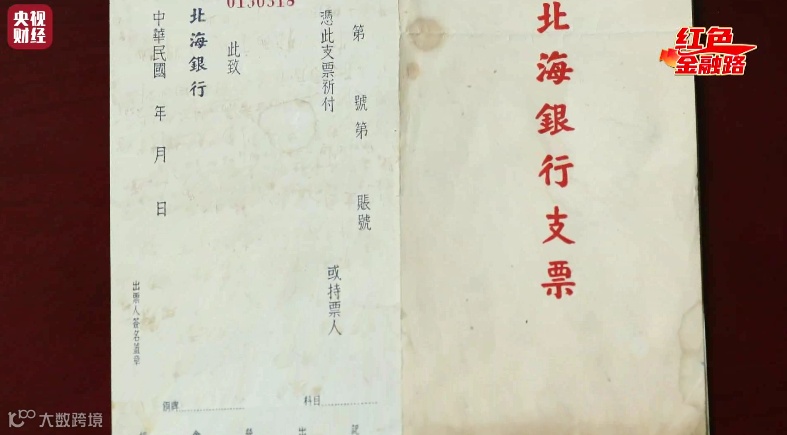 央视
财经
红色
金融路
北海銀行支票
0130318
第 號第 賬號
憑此支票祈付 或持票人
此致
北海銀行
中華民國 年 月 日
出票人簽名蓋章
科目
大数跨境